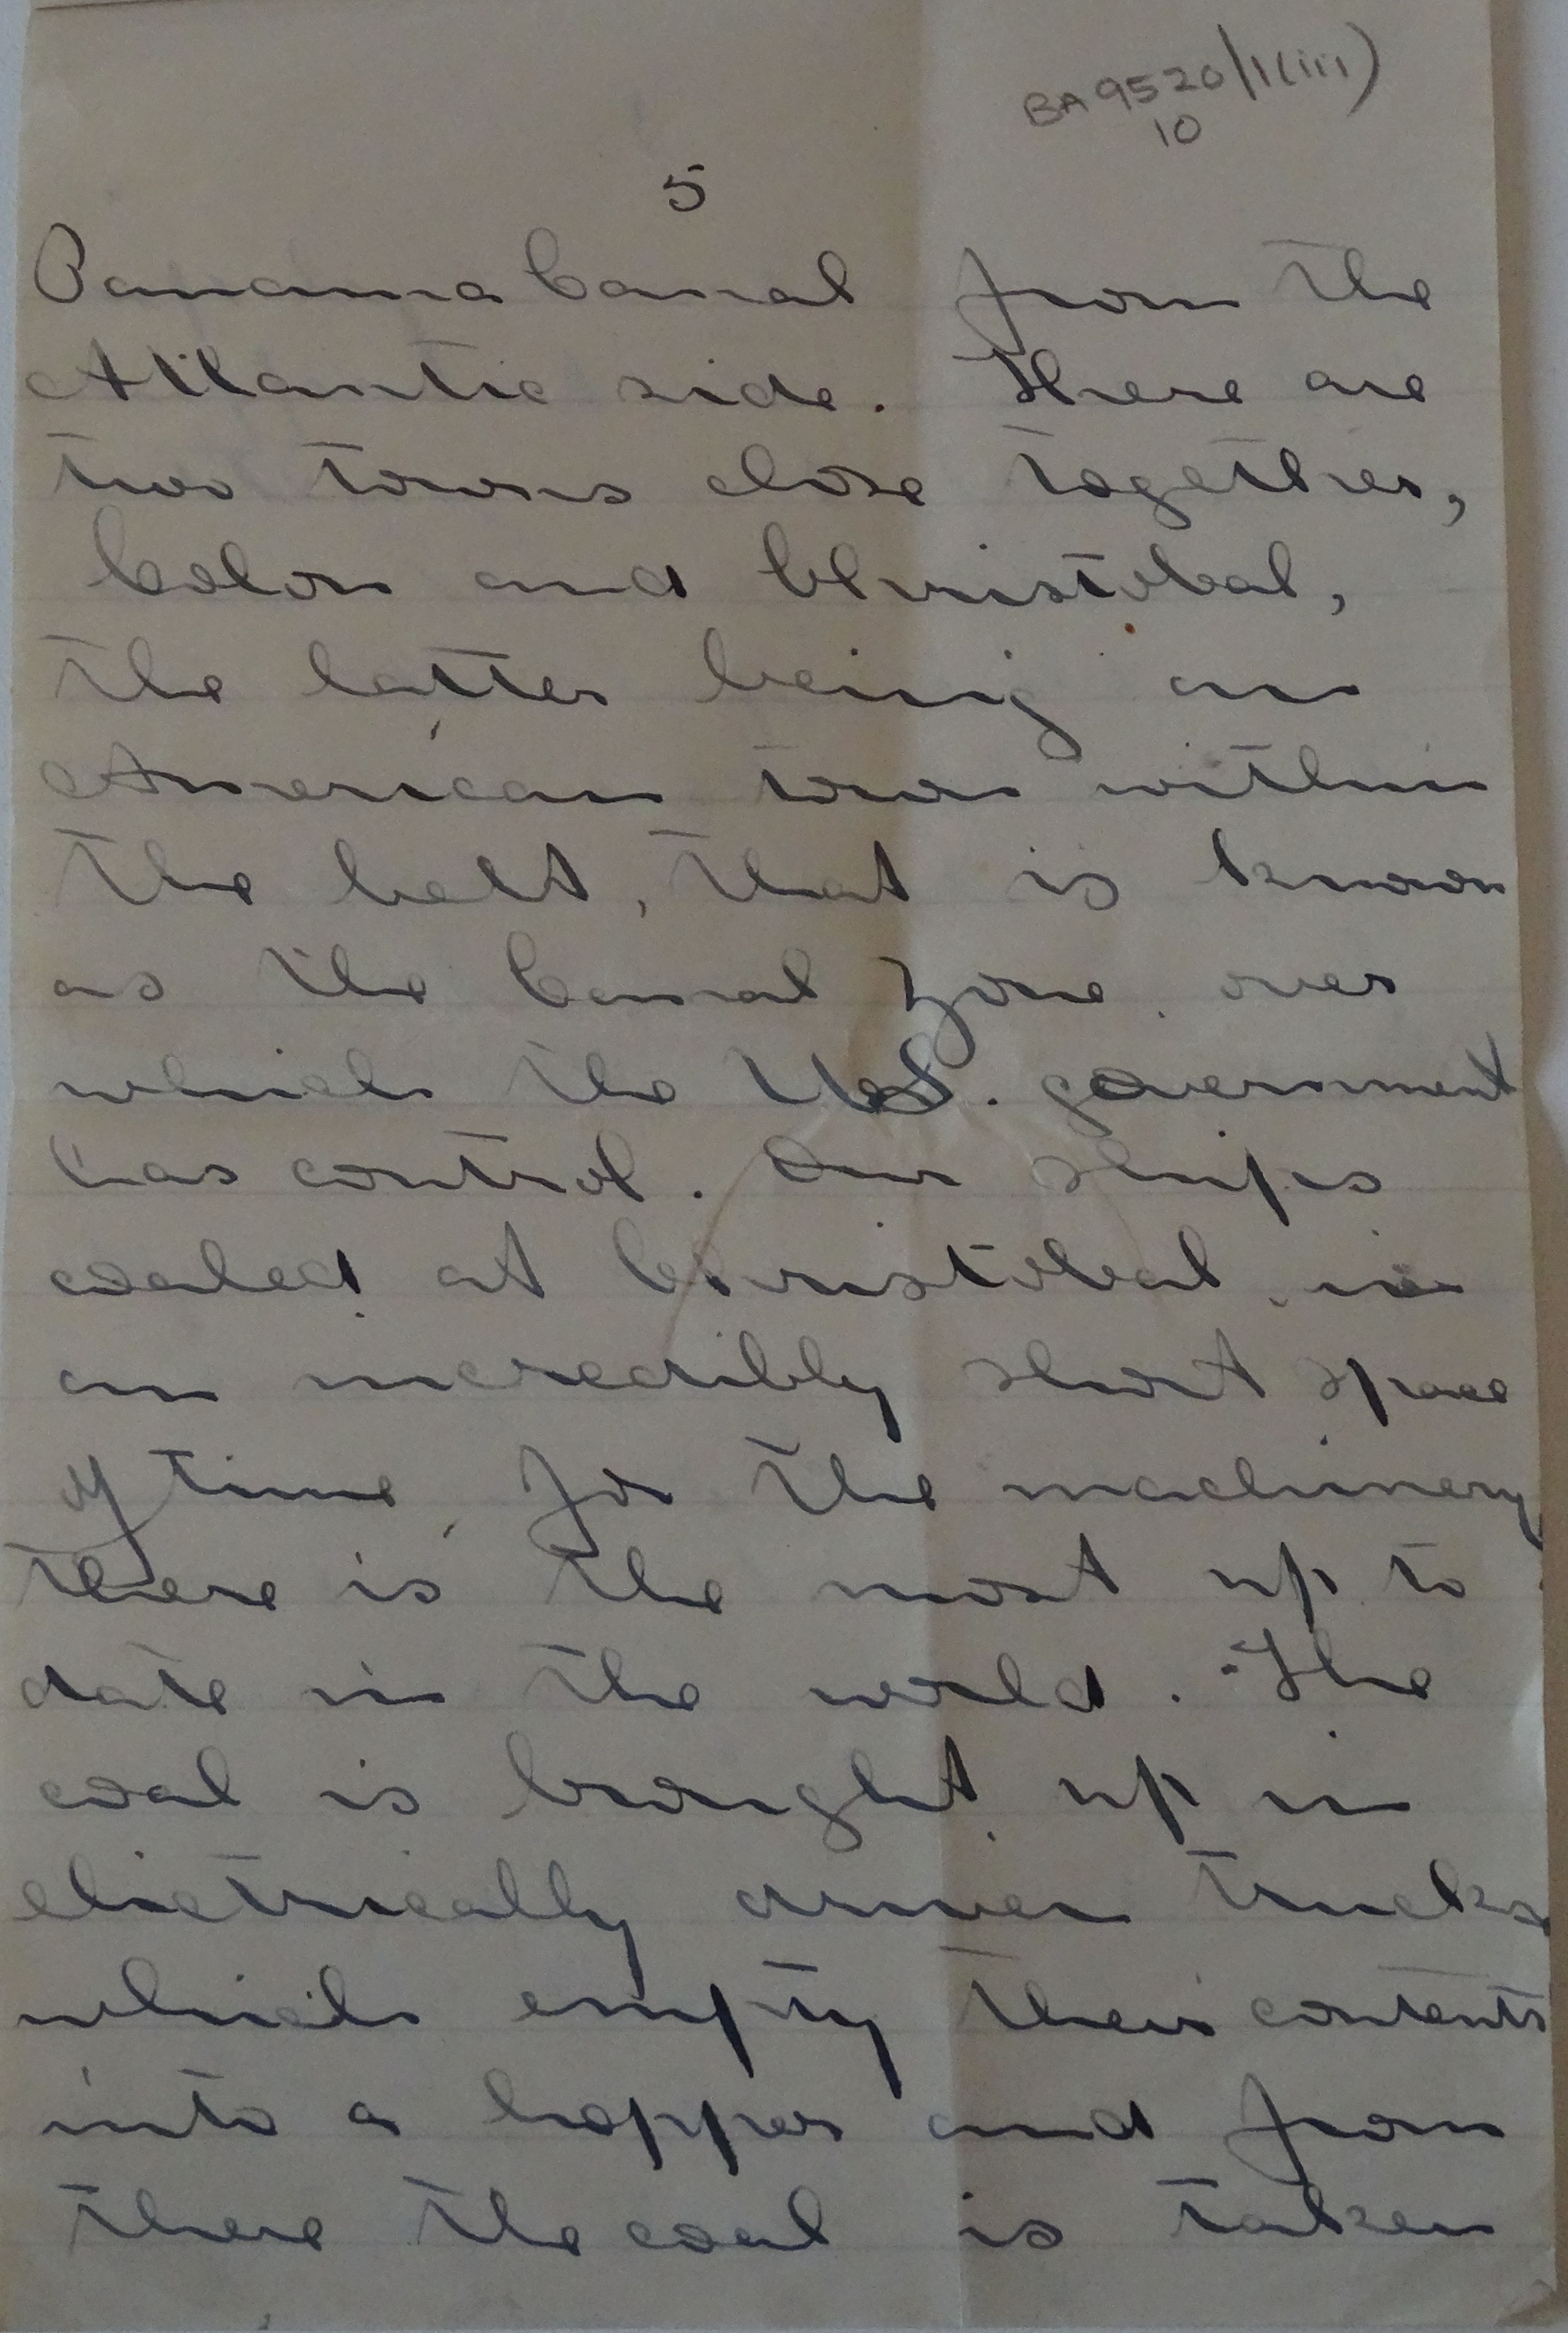 BA 9520/1(iii)
10
5
Panama Canal from the
Atlantic side. There are
two towns close together,
Colon and Christobal,
the latter being an
American town within
the belt, that is known
as the Canal Zone, over
which the U.S. government
has control. Our ships
coaled at Christobal, in
an incredibly short space
of time, for the machinery
there is the most up to
date in the world. The
coal is brought up in
electrically driven trucks
which empty their contents
into a hopper and from
there the coal is taken